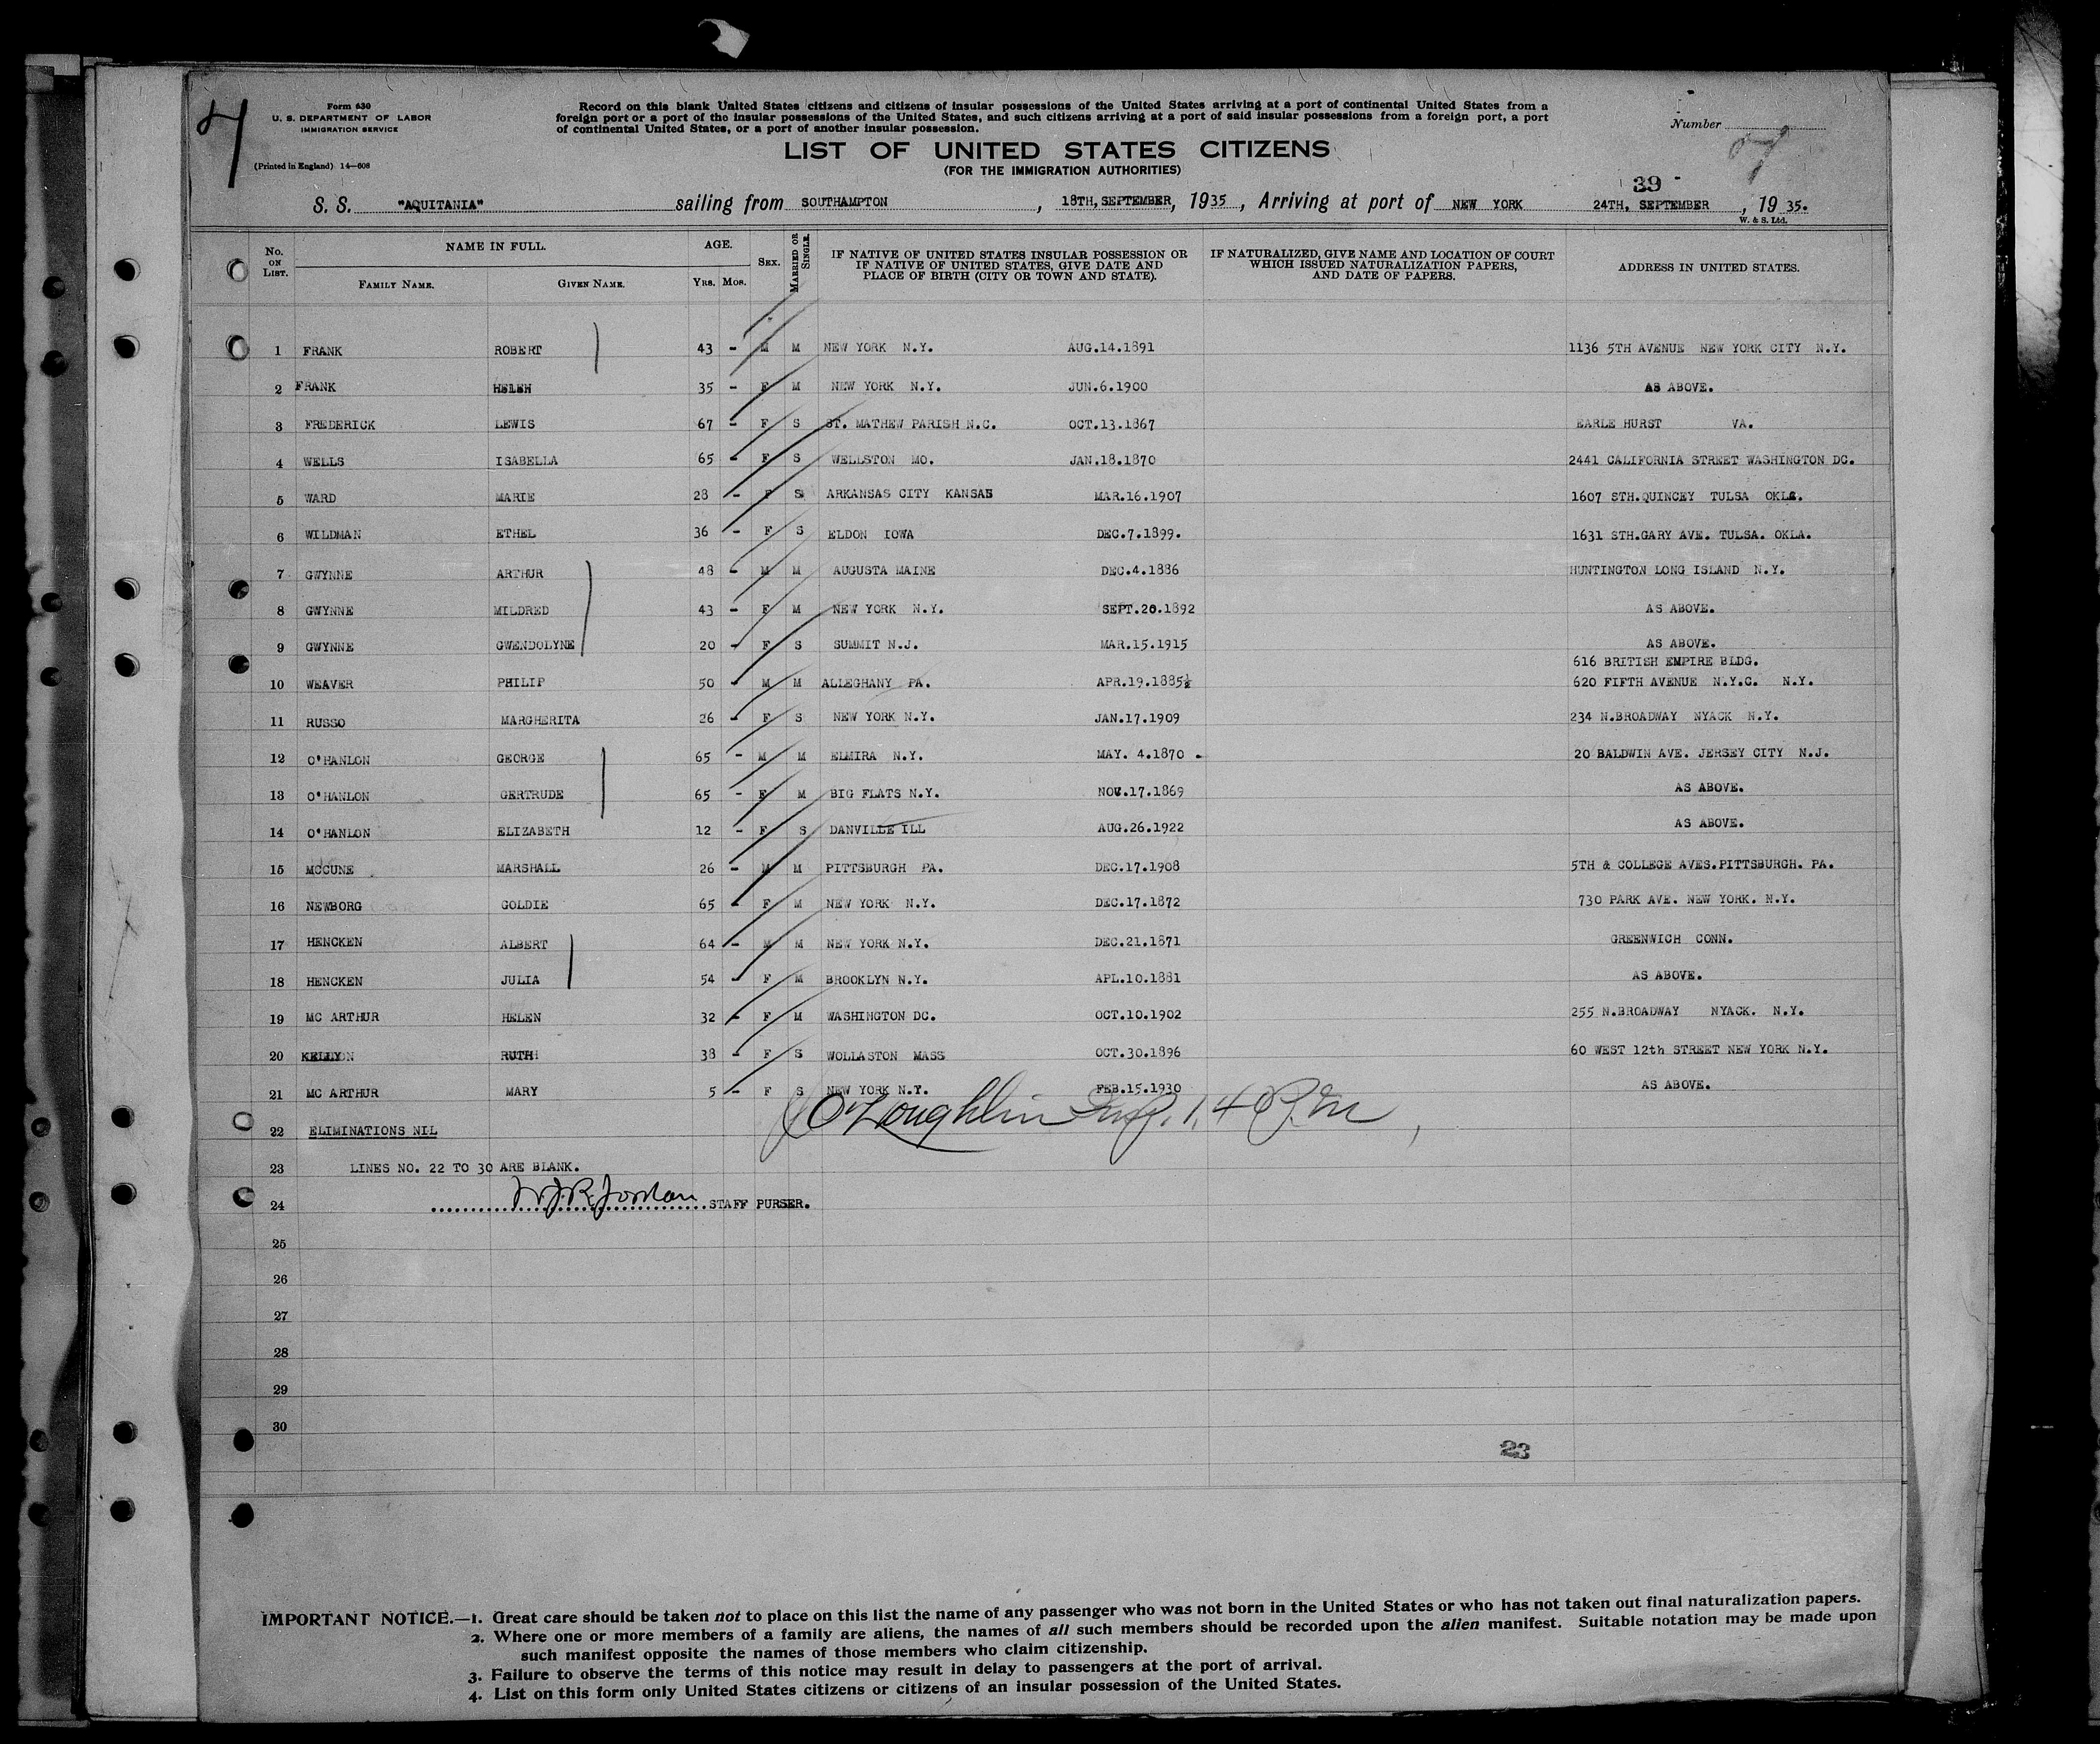 4
Form 630
U. S. DEPARTMENT OF LABOR
IMMIGRATION SERVICE
(Printed in England) 14—608
Record on this blank United States citizens and citizens of insular possessions of the United States arriving at a port of continental United States from a
foreign port or a port of the insular possessions of the United States, and such citizens arriving at a port of said insular possessions from a foreign port, a port
of continental United States, or a port of another insular possession.
Number
LIST OF UNITED STATES CITIZENS
(FOR THE IMMIGRATION AUTHORITIES)
39
S. S. "AQUITANIA" sailing from SOUTHAMPTON, 18TH, SEPTEMBER, 1935, Arriving at port of NEW YORK 24TH, SEPTEMBER, 1935.
W. & S. Ltd.
No. ON LIST. NAME IN FULL. FAMILY NAME. GIVEN NAME. AGE. YRS. MOS. SEX. MARRIED OR SINGLE. IF NATIVE OF UNITED STATES INSULAR POSSESSION OR IF NATIVE OF UNITED STATES, GIVE DATE AND PLACE OF BIRTH (CITY OR TOWN AND STATE). IF NATURALIZED, GIVE NAME AND LOCATION OF COURT WHICH ISSUED NATURALIZATION PAPERS, AND DATE OF PAPERS. ADDRESS IN UNITED STATES.
1 FRANK ROBERT 43 - M M NEW YORK N.Y. AUG.14.1891 1136 5TH AVENUE NEW YORK CITY N.Y.
2 FRANK HELEN 35 - F M NEW YORK N.Y. JUN.6.1900 AS ABOVE.
3 FREDERICK LEWIS 67 - F S ST. MATHEW PARISH N.C. OCT.13.1867 EARLE HURST VA.
4 WELLS ISABELLA 65 - F S WELLSTON MO. JAN.18.1870 2441 CALIFORNIA STREET WASHINGTON DC.
5 WARD MARIE 28 - F S ARKANSAS CITY KANSAS MAR.16.1907 1607 STH.QUINCEY TULSA OKLA.
6 WILDMAN ETHEL 36 - F S ELDON IOWA DEC.7.1899. 1631 STH.GARY AVE. TULSA. OKLA.
7 GWYNNE ARTHUR 48 - M M AUGUSTA MAINE DEC.4.1886 HUNTINGTON LONG ISLAND N.Y.
8 GWYNNE MILDRED 43 - F M NEW YORK N.Y. SEPT.20.1892 AS ABOVE.
9 GWYNNE GWENDOLYNE 20 - F S SUMMIT N.J. MAR.15.1915 AS ABOVE.
616 BRITISH EMPIRE BLDG.
10 WEAVER PHILIP 50 - M M ALLEGHANY PA. APR.19.1885½ 620 FIFTH AVENUE N.Y.C. N.Y.
11 RUSSO MARGHERITA 26 - F S NEW YORK N.Y. JAN.17.1909 234 N.BROADWAY NYACK N.Y.
12 O'HANLON GEORGE 65 - M M ELMIRA N.Y. MAY. 4.1870 - 20 BALDWIN AVE. JERSEY CITY N.J.
13 O'HANLON GERTRUDE 65 - F M BIG FLATS N.Y. NOV.17.1869 AS ABOVE.
14 O'HANLON ELIZABETH 12 - F S DANVILLE ILL AUG.26.1922 AS ABOVE.
15 MCCUNE MARSHALL 26 - M M PITTSBURGH PA. DEC.17.1908 5TH & COLLEGE AVES.PITTSBURGH. PA.
16 NEWBORG GOLDIE 65 - F M NEW YORK N.Y. DEC.17.1872 730 PARK AVE. NEW YORK. N.Y.
17 HENCKEN ALBERT 64 - M M NEW YORK N.Y. DEC.21.1871 GREENWICH CONN.
18 HENCKEN JULIA 54 - F M BROOKLYN N.Y. APL.10.1881 AS ABOVE.
19 MC ARTHUR HELEN 32 - F M WASHINGTON DC. OCT.10.1902 255 N.BROADWAY NYACK. N.Y.
20 KELLY RUTH 38 - F S WOLLASTON MASS OCT.30.1896 60 WEST 12th STREET NEW YORK N.Y.
21 MC ARTHUR MARY 5 - F S NEW YORK N.Y. FEB.15.1930 AS ABOVE.
O'Loughlin Insp. 1.40 P.M
22 ELIMINATIONS NIL
23 LINES NO. 22 TO 30 ARE BLANK.
24 W.J.R. Jordan STAFF PURSER.
25
26
27
28
29
30
23
IMPORTANT NOTICE.—1. Great care should be taken not to place on this list the name of any passenger who was not born in the United States or who has not taken out final naturalization papers.
2. Where one or more members of a family are aliens, the names of all such members should be recorded upon the alien manifest. Suitable notation may be made upon
such manifest opposite the names of those members who claim citizenship.
3. Failure to observe the terms of this notice may result in delay to passengers at the port of arrival.
4. List on this form only United States citizens or citizens of an insular possession of the United States.